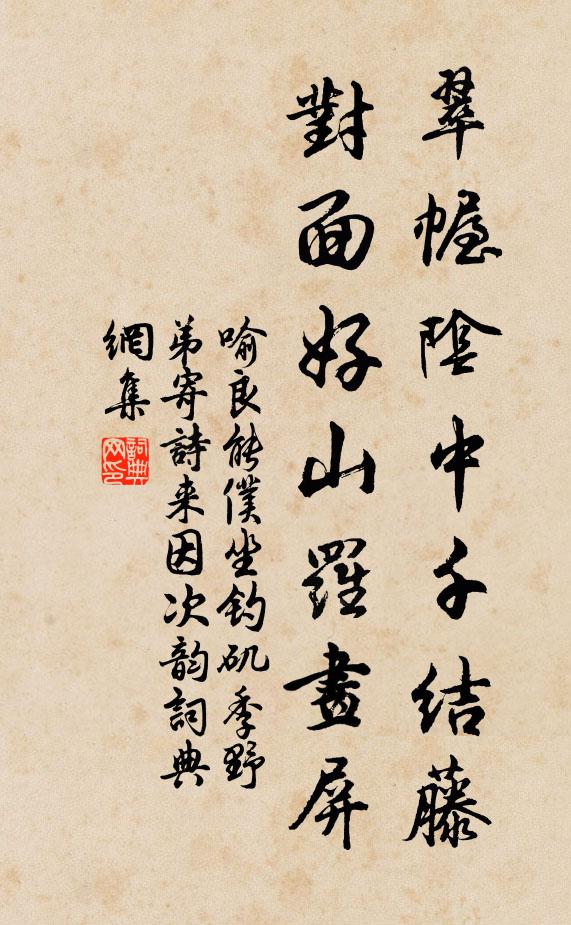 翠幄陰中千結藤
對面好山羅畫屏
喻良能僕坐釣磯季野
弟寄詩来因次韵詞典
網集
詞典
网印